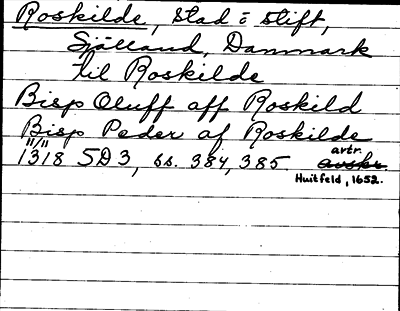 Roskilde, Stad i stift,
Själland, Danmark
til Roskilde
Bisp Oluff aff Roskild
Bisp Peder af Roskilde
11/11
1318 SD3, ss. 384, 385. avskr. avtr.
Huitfeld, 1652.